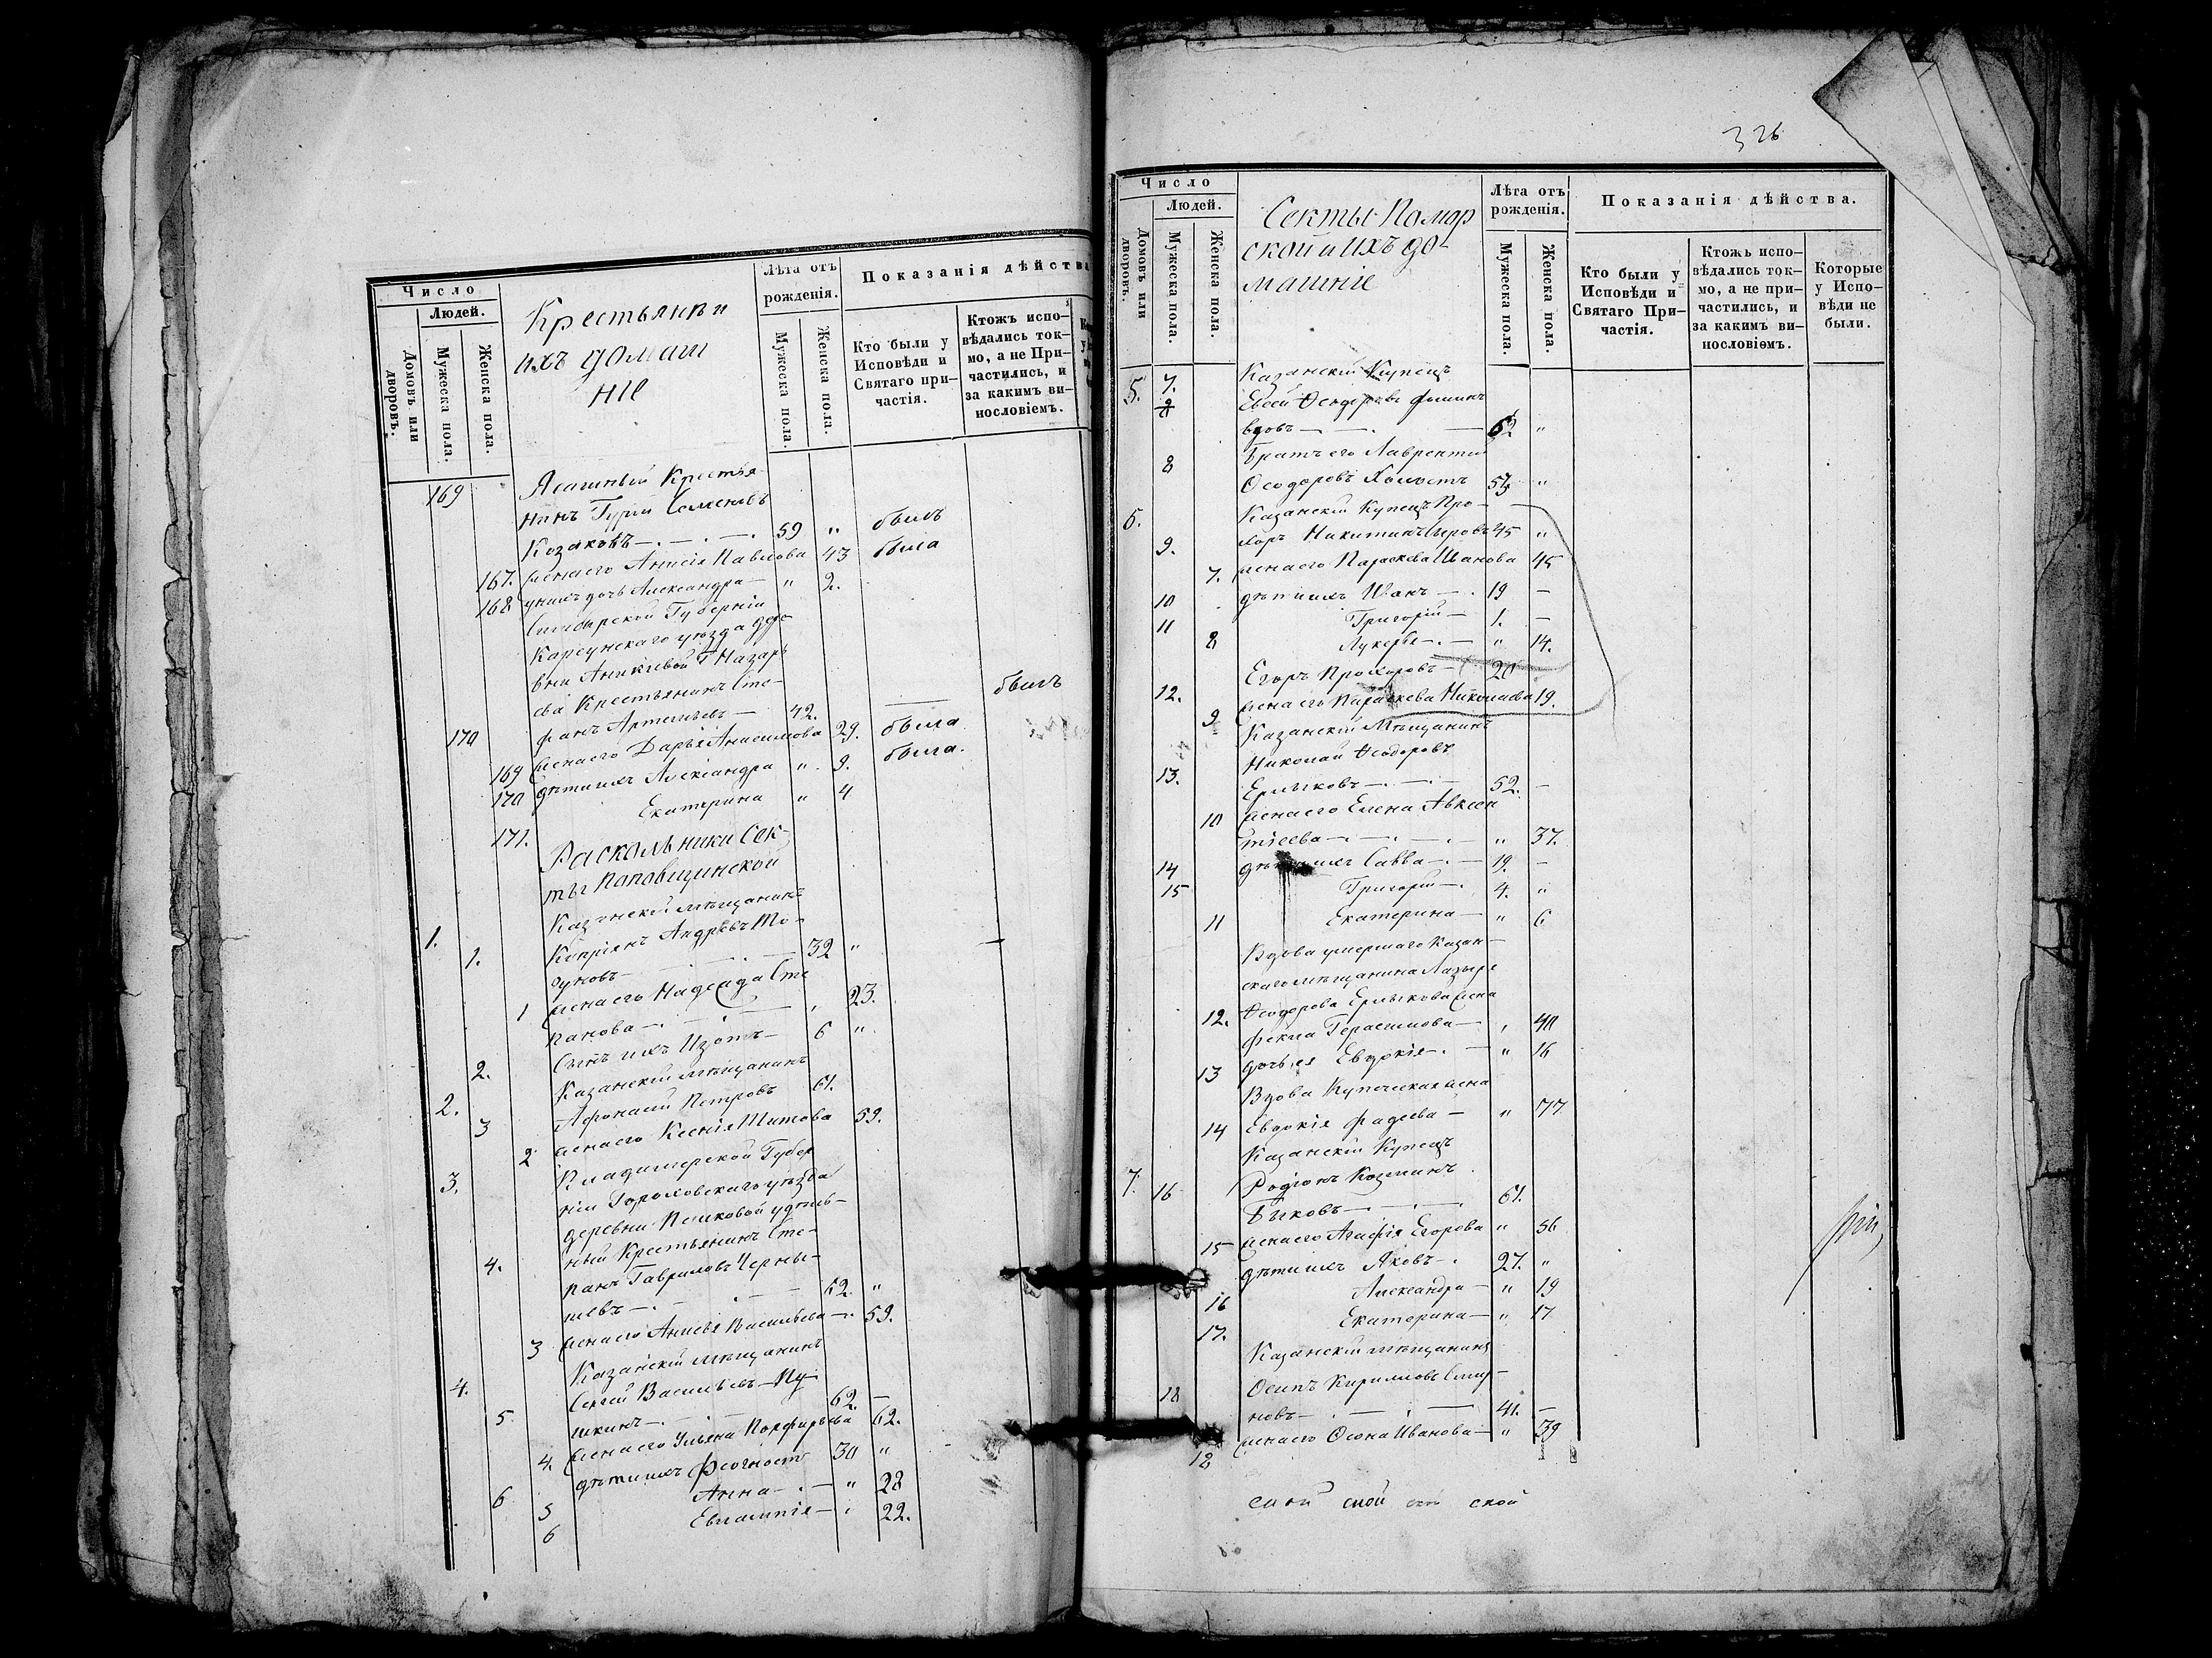 Число
Людей.
Домовъ или дворовъ.
Мужеска пола.
Женска пола.
Крестьяне и
ихъ домаш
ніе
Лѣта отъ рожденія.
Мужеска пола.
Женска пола.
Показанія дѣйства
Кто были у Исповѣди и Святаго при-
частія.
Ктожъ испо-
вѣдались ток-
мо, а не При-
частились, и
за какимъ ви-
нословіемъ.
169 Ясашный Крестья
нинъ Гурій Семеновъ
Козаковъ 59 " былъ
167. жена его Анисія Павлова 43 была
168 у нихъ дочь Александра " 2.
Симбирской Губерніи
Карсунскаго уѣзда дре
вни Аникіевой Г. Назарь
ева Крестьянинъ Сте-
170 фанъ Артемьевъ 42. былъ
169 жена его Дарья Анисимова 29. была
170 дѣти ихъ Александра " 9. была.
171. Екатерина " 4
Раскольники Сек-
ты Поповщинской
1. Казанскій мѣщанинъ
1. Кипріянъ Андреевъ
32 "
1 жена его Надежда Сте
панова " 23.
2. Сынъ ихъ Изотъ 6 "
2. Казанскій мѣщанинъ
3 Афонасій Петровъ 61.
2 жена его Ксенія Титова 59.
3. Владимерской Губер
ніи Гороховскаго уѣзда
деревни удѣль-
ный Крестьянинъ Сте-
4. панъ Гавриловъ Черны-
шевъ 62. "
3 жена его Анисья Васильева 59.
4. Казанскій мѣщанинъ
5. Сергей Васильевъ Пу-
шкинъ 62. —
4. жена его Ульяна Порфирьева 62.
6 дѣти ихъ Феогностъ 30 "
5 Анна " 28
6 Евлампія " 22.
326
Число
Людей.
Домовъ или дворовъ.
Мужеска пола.
Женска пола.
Секты Помор
ской и ихъ до-
машніе
Лѣта отъ рожденія.
Мужеска пола.
Женска пола.
Показанія дѣйства.
Кто были у Исповѣди и Святаго При-
частія.
Ктожъ испо-
вѣдались ток-
мо, а не при-
частились, и
за какимъ ви-
нословіемъ.
Которые у Испо-
вѣди не были.
5. 7. Казанскій Купецъ
Евсей Ѳеодоровъ Фоминъ
вдовъ 62 "
8 Братъ его Лаврентій
Ѳеодоровъ Холостъ 57 "
6. Казанскій Купецъ Про-
9. хоръ Никитинъ 45 "
7. жена его Параскева Иванова 45
10 дѣти ихъ Иванъ 19 —
11 Григорій 1. —
8 Лукерья " 14.
12. Егоръ Прохоровъ 20
9 жена его Параскева Николаева 19.
Казанскій Мѣщанинъ
13. Николай Ѳеодоровъ
Ерлыковъ 52. —
10 жена его Елена Авксен
тіева " 37.
14 дѣти ихъ Савва 19. —
15 Григорій 4. "
11 Екатерина " 6
Вдова умершаго Казан-
скаго мѣщанина Лазаря
12. Ѳеодорова Ерлыкова жена
Фекла Герасимова " 40
13 дочь ея Евдокія " 16
Вдова Купеческая жена
14 Евдокія Фадеева " 77
Казанскій Купецъ
7. 16 Родіонъ Козминъ
Быковъ 61.
15 жена его Агафія Егорова " 56
дѣти ихъ Яковъ 27. "
16 Александра " 19
17. Екатерина " 17
Казанскій мѣщанинъ
18 Осипъ Кириловъ Смир-
новъ 41. —
18 жена его Ѳеона Иванова " 39
ской ской